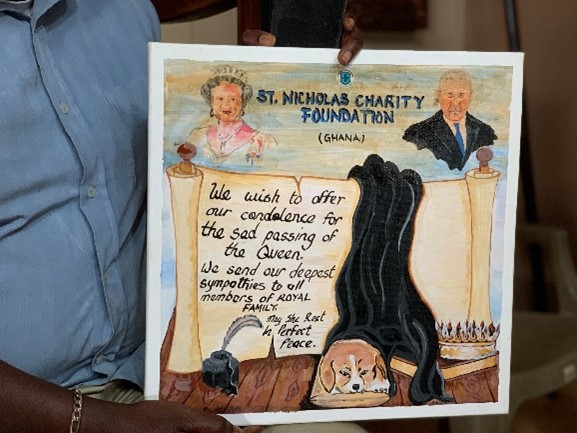 ST. NICHOLAS CHARITY
FOUNDATION
(GHANA)
We wish to offer
our condolence for
the sad passing of
the Queen.
We send our deepest
sympathies to all
members of ROYAL
FAMILY.
May She Rest
in Perfect
Peace.